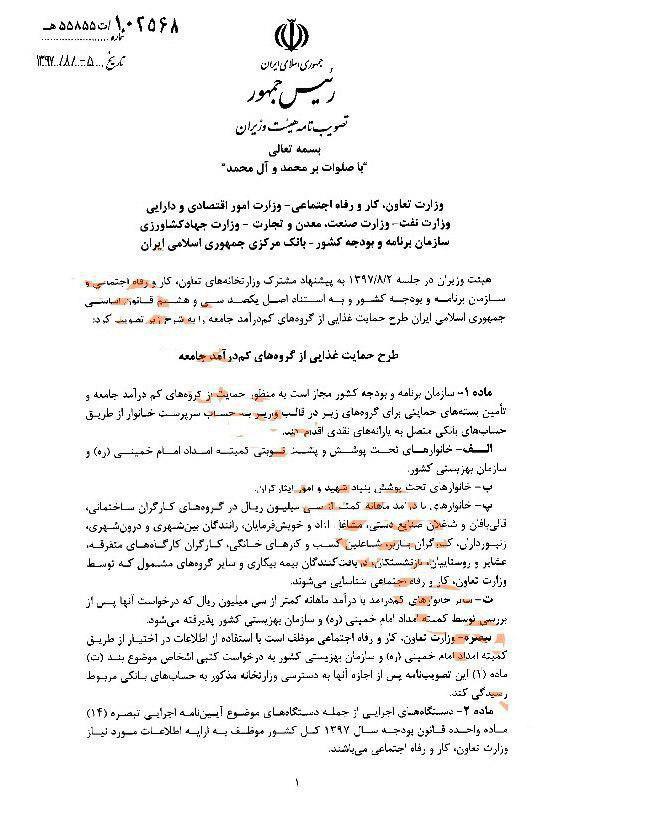 شماره ۱۰۲۵۶۸/ت۵۵۸۵۵هـ
تاریخ ۱۳۹۷/۸/۰۵
جمهوری اسلامی ایران
رئیس جمهور
تصویب نامه هیئت وزیران
بسمه تعالی
"با صلوات بر محمد و آل محمد"
وزارت تعاون، کار و رفاه اجتماعی- وزارت امور اقتصادی و دارایی
وزارت نفت- وزارت صنعت، معدن و تجارت - وزارت جهادکشاورزی
سازمان برنامه و بودجه کشور- بانک مرکزی جمهوری اسلامی ایران
هیئت وزیران در جلسه ۱۳۹۷/۸/۲ به پیشنهاد مشترک وزارتخانه‌های تعاون، کار و رفاه اجتماعی و
سازمان برنامه و بودجه کشور و به استناد اصل یکصد سی و هشتم قانون اساسی
جمهوری اسلامی ایران طرح حمایت غذایی از گروه‌های کم‌درآمد جامعه را به شرح زیر تصویب کرد:
طرح حمایت غذایی از گروه‌های کم‌درآمد جامعه
ماده ۱- سازمان برنامه و بودجه کشور مجاز است به منظور حمایت از گروه‌های کم درآمد جامعه و
تأمین بسته‌های حمایتی برای گروه‌های زیر در قالب واریز به حساب سرپرست خانوار از طریق
حساب‌های بانکی متصل به یارانه‌های نقدی اقدام کند.
الف- خانوارهای تحت پوشش و پشت نوبتی کمیته امداد امام خمینی (ره) و
سازمان بهزیستی کشور.
ب- خانوارهای تحت پوشش بنیاد شهید و امور ایثارگران.
پ- خانوارهای با درآمد ماهانه کمتر از سی میلیون ریال در گروه‌های کارگران ساختمانی،
قالی‌بافان و شاغلان صنایع دستی، مشاغل آزاد و خویش‌فرمایان، رانندگان بین‌شهری و درون‌شهری،
زنبورداران، کارگران باربر، شاغلین کسب و کارهای خانگی، کارگران کارگاه‌های متفرقه،
عشایر و روستاییان، بازنشستگان، دریافت‌کنندگان بیمه بیکاری و سایر گروه‌های مشمول که توسط
وزارت تعاون، کار و رفاه اجتماعی شناسایی می‌شوند.
ت- سایر خانوارهای کم‌درآمد با درآمد ماهانه کمتر از سی میلیون ریال که درخواست آنها پس از
بررسی توسط کمیته امداد امام خمینی (ره) و سازمان بهزیستی کشور پذیرفته می‌شود.
تبصره- وزارت تعاون، کار و رفاه اجتماعی موظف است با استفاده از اطلاعات در اختیار از طریق
کمیته امداد امام خمینی (ره) و سازمان بهزیستی کشور به درخواست کتبی اشخاص موضوع بند (ت)
ماده (۱) این تصویب‌نامه پس از اجازه آنها به دسترسی وزارتخانه مذکور به حساب‌های بانکی مربوط
رسیدگی کند.
ماده ۲- دستگاه‌های اجرایی از جمله دستگاه‌های موضوع آیین‌نامه اجرایی تبصره (۱۴)
ماده واحده قانون بودجه سال ۱۳۹۷ کل کشور موظف به ارایه اطلاعات مورد نیاز
وزارت تعاون، کار و رفاه اجتماعی می‌باشند.
۱